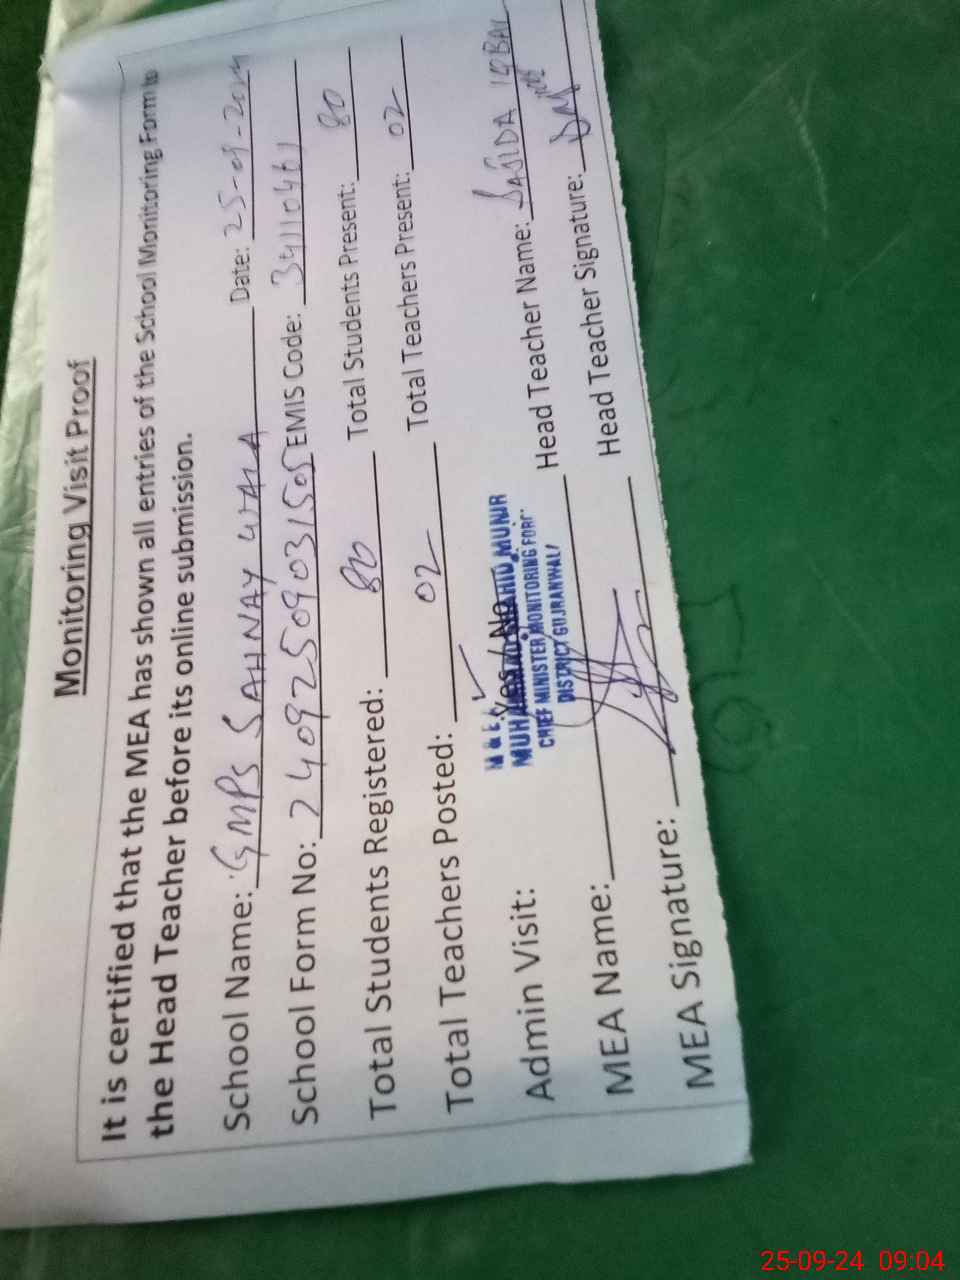 Monitoring Visit Proof
It is certified that the MEA has shown all entries of the School Monitoring Form to
the Head Teacher before its online submission.
School Name: GMPS SAHNAY WALA Date: 25-09-2024
School Form No: 24092509031505 EMIS Code: 34110461
Total Students Registered: 80 Total Students Present: 80
Total Teachers Posted: 02 Total Teachers Present: 02
Admin Visit: Yes / No ✓
M & E
MUHAMMAD SHAHID MUNIR
CHIEF MINISTER MONITORING FORC
DISTRICT GUJRANWAL
MEA Name: Head Teacher Name: SAJIDA IQBAL
MEA Signature: Head Teacher Signature:
25-09-24 09:04